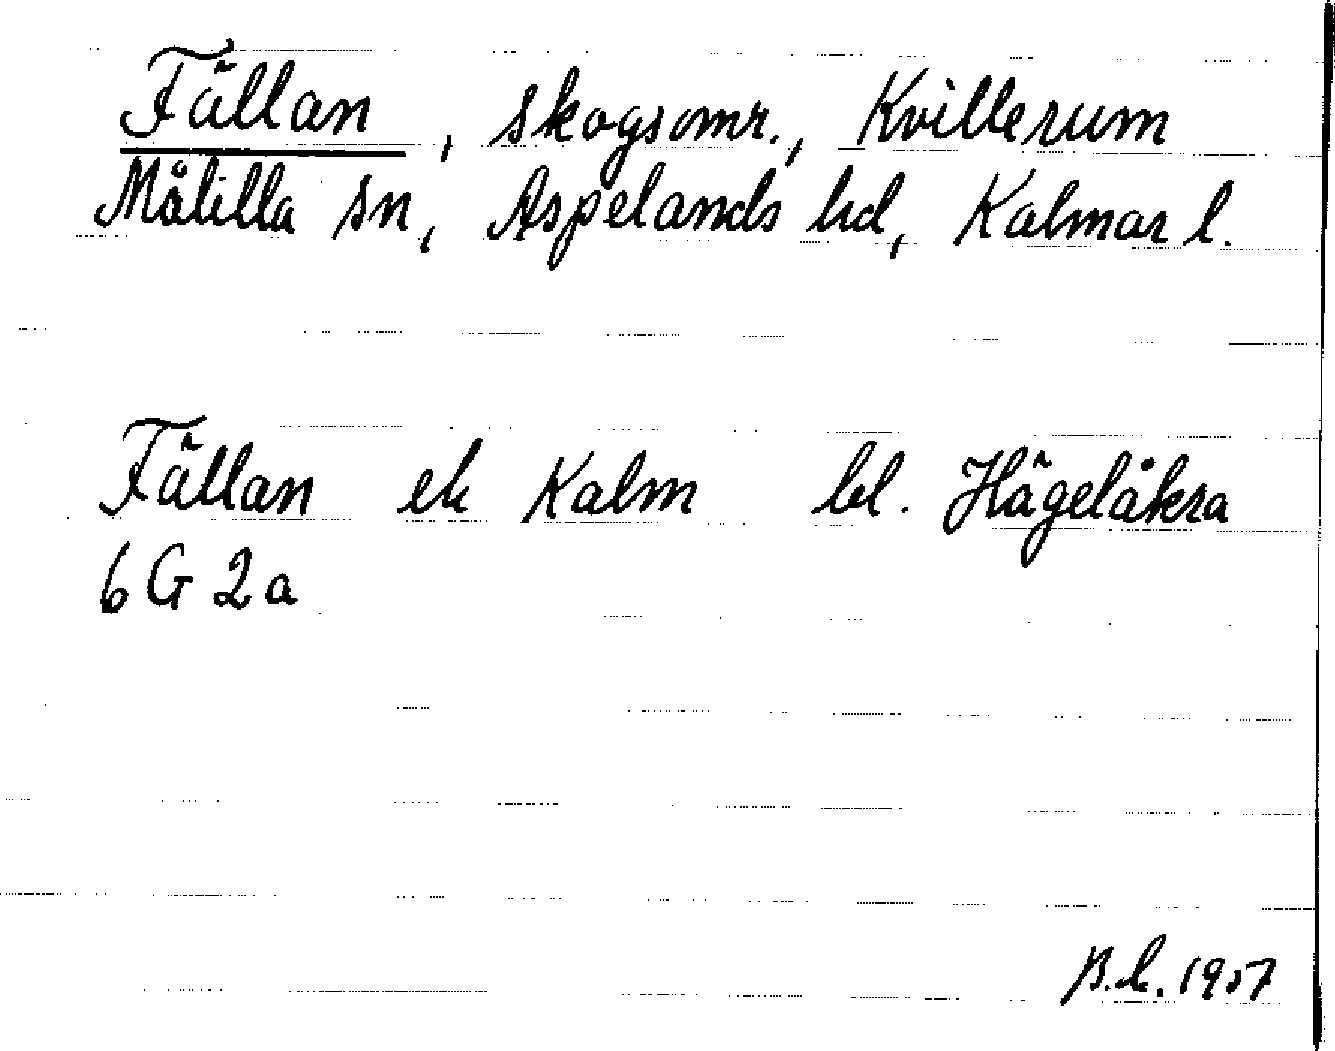 Fällan, skogsomr., Kvillerum
Målilla sn, Aspelands hd, Kalmar l.
Fällan ek Kalm bl. Hägelåkra
6G2a
B.L. 1957